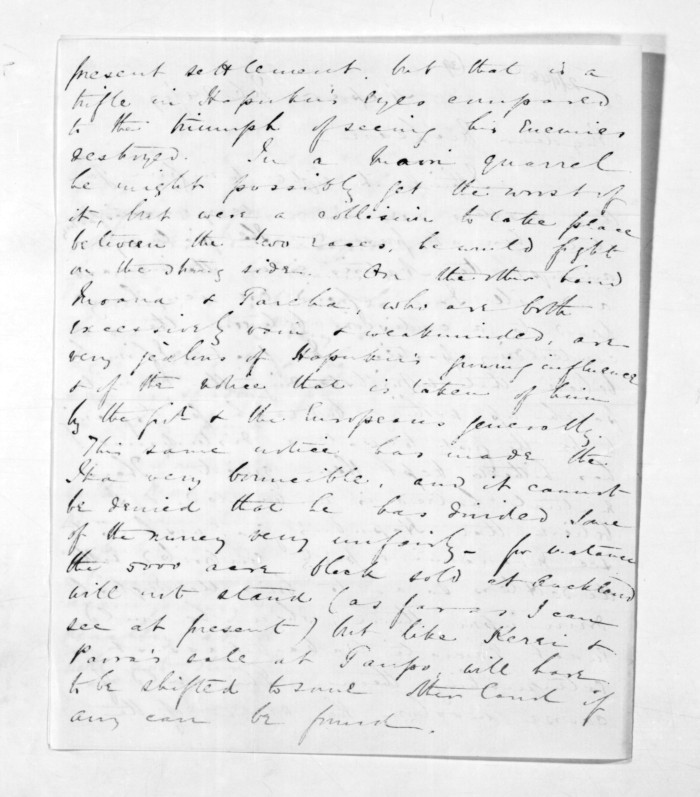 present settlement, but that is a
trifle in Hapuku's eyes compared
to the triumph of seeing his Enemies
destroyed. In a Maori quarrel
he might possibly get the worst of
it, but were a collision to take place
between the two races, he would fight
on the strong side. On the other hand
Moana & Tareha, who are both
excessively vain & weakminded, are
very jealous of Hapuku's growing influence
& of the notice that is taken of him
by the Govt. & the Europeans generally.
This same notice has made the
Ika very bounceible, and it cannot
be denied that he has divided some
of the money very unfairly – for instance
the 5000 acre block sold at Auckland
will not stand (as far as I can
see at present) but like Kerei &
Pavra's sale at Taupo, will have
to be shifted to some other land if
any can be found.